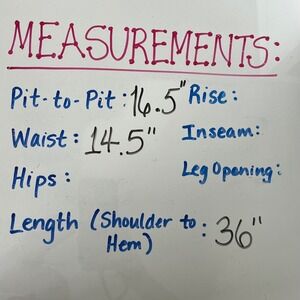 MEASUREMENTS:
Pit-to-Pit: 16.5" Rise:
Waist: 14.5" Inseam:
Hips: Leg Opening:
Length (Shoulder to
Hem) : 36"